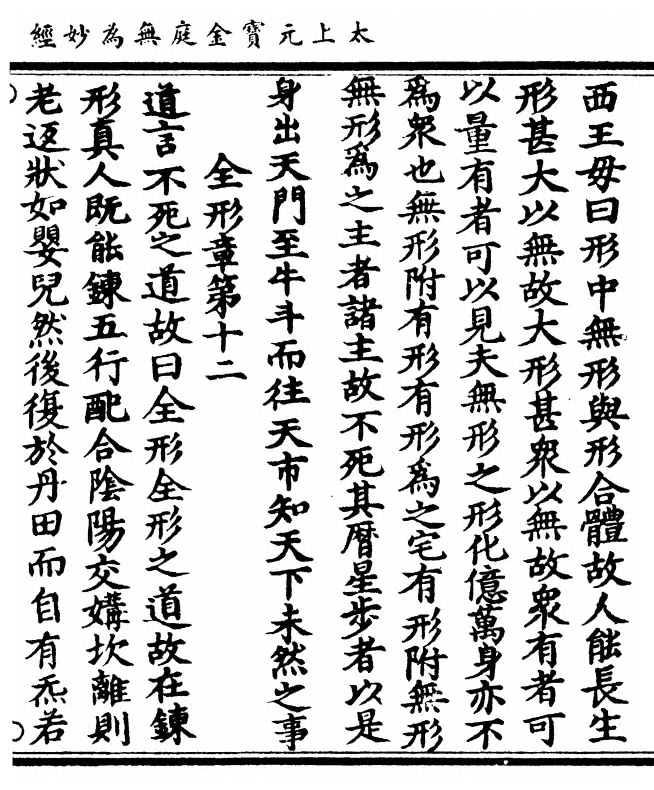 太上元寳金庭無為妙經
西王毋曰形中無形與形合體故人能長生
形甚大以無故大形甚衆以無故衆有者可
以量有者可以見夫無形之形化億萬身亦不
爲衆也無形附有形有形爲之宅有形附無形
無形爲之主者諸主故不死其曆星步者以是
身出天門至牛斗而往天市知天下未然之事
全形章第十二
道言不死之道故曰全形全形之道故在鍊
形真人既能鍊五行配合陰陽交媾坎離則
老返狀如嬰兒然後復於丹田而自有炁若